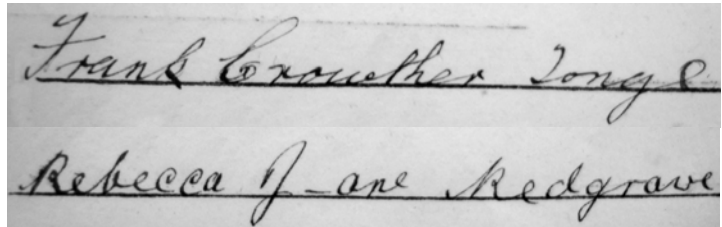 Frank Crowther Tonge
Rebecca Jane Redgrave